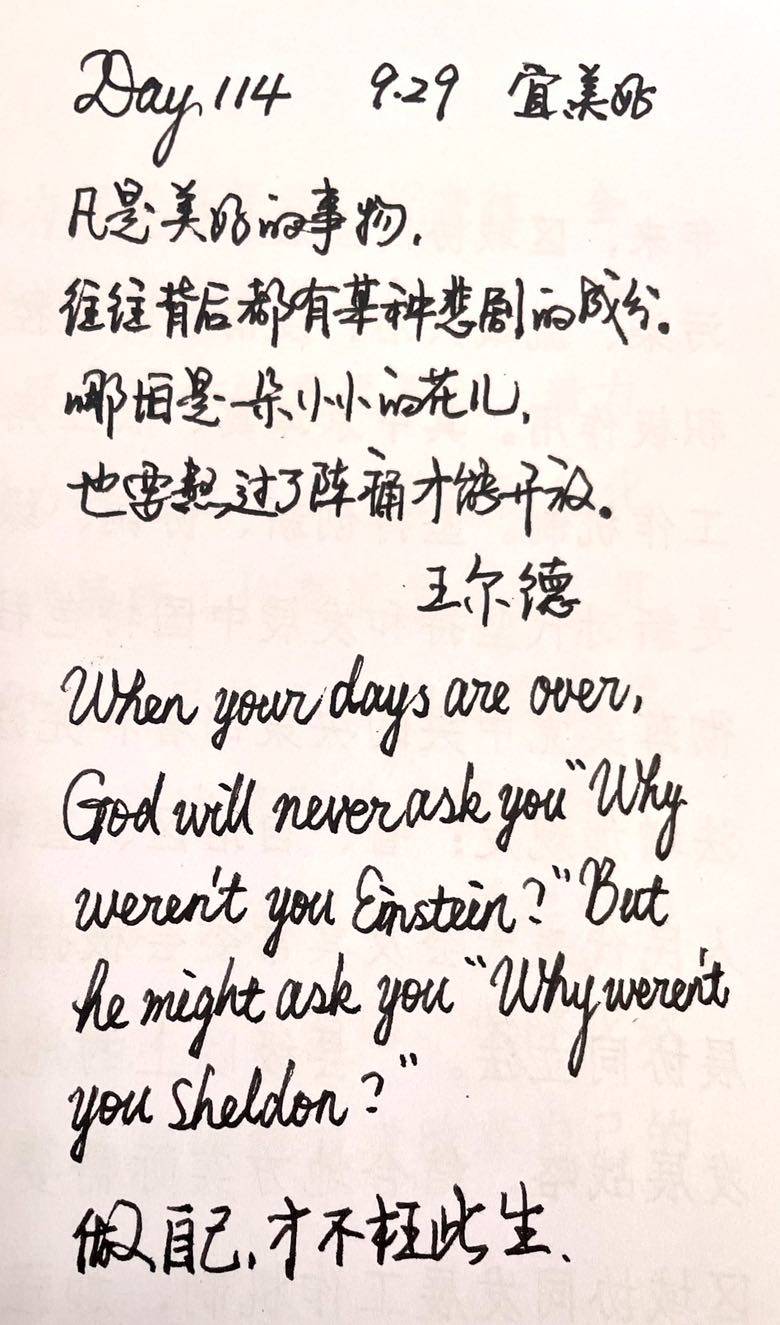 Day 114 9.29 宜美好
凡是美好的事物,
往往背后都有某种悲剧的成分。
哪怕是一朵小小的花儿,
也要熬过了阵痛才能开放。
王尔德
When your days are over,
God will never ask you "Why
weren't you Einstein?" But
he might ask you "Why weren't
you Sheldon?"
做自己,才不枉此生、